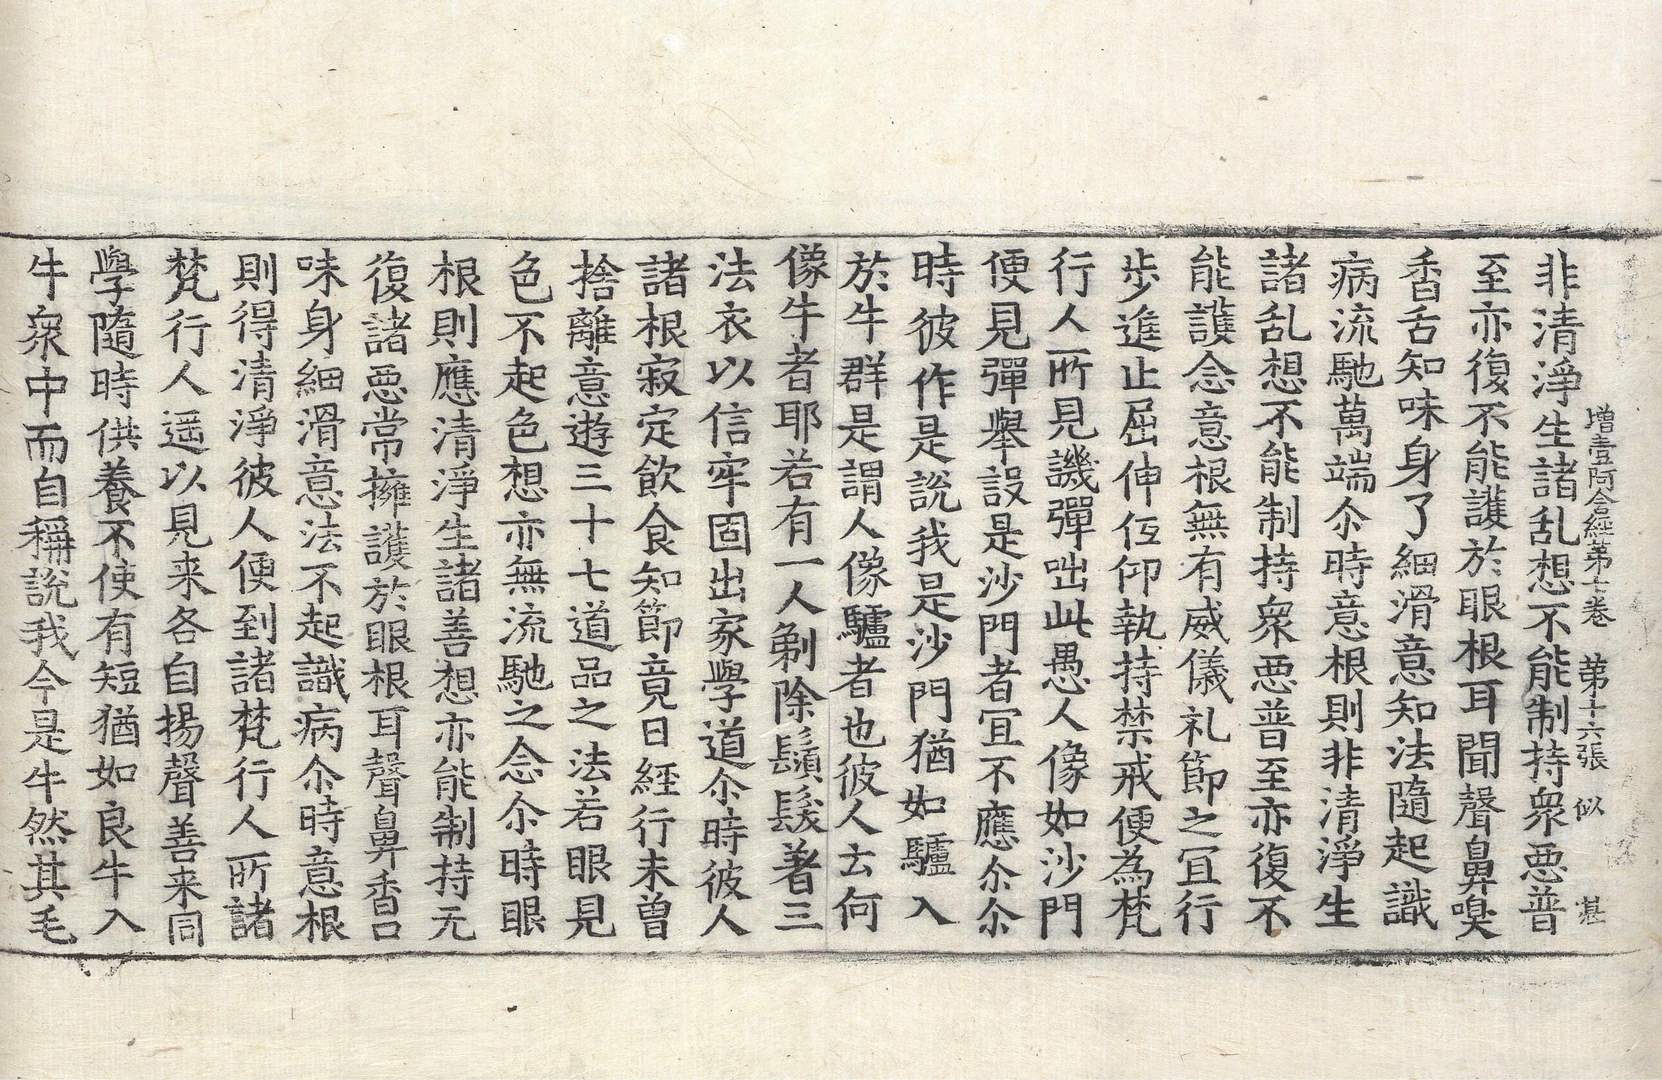 增壹阿含經第七卷 第十六張 似 甚
非清淨生諸乱想不能制持衆悪普
至亦復不能護於眼根耳聞聲鼻嗅
香舌知味身了細滑意知法隨起識
病流馳萬端尒時意根則非清淨生
諸乱想不能制持衆悪普至亦復不
能護念意根無有威儀礼節之宜行
步進止屈伸仾仰執持禁戒便為梵
行人所見譏彈咄此愚人像如沙門
便見彈舉設是沙門者宜不應尒尒
時彼作是說我是沙門猶如驢入
於牛群是謂人像驢者也彼人云何
像牛者耶若有一人剃除鬚髮著三
法衣以信牢固出家學道尒時彼人
諸根寂定飲食知節竟日經行未曾
捨離意遊三十七道品之法若眼見
色不起色想亦無流馳之念尒時眼
根則應清淨生諸善想亦能制持无
復諸悪常擁護於眼根耳聲鼻香口
味身細滑意法不起識病尒時意根
則得清淨彼人便到諸梵行人所諸
梵行人遥以見来各自揚聲善来同
學隨時供養不使有短猶如良牛入
牛衆中而自稱說我今是牛然其毛